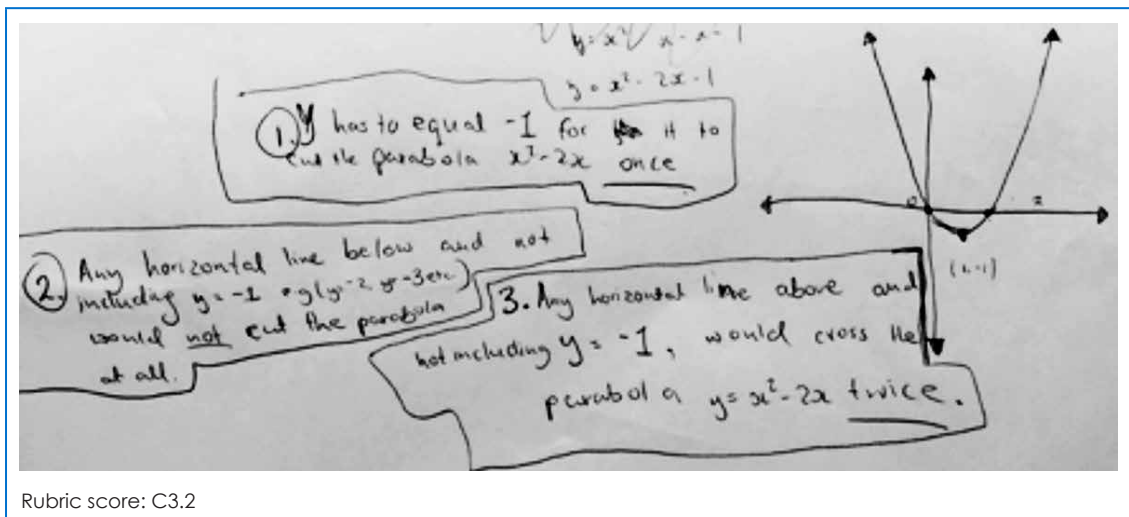 y = x² - 2x - 1
1. y has to equal -1 for it to
cut the parabola x² - 2x once
2. Any horizontal line below and not
including y = -1 eg (y=-2 y=-3 etc)
would not cut the parabola
at all.
3. Any horizontal line above and
not including y = -1, would cross the
parabola y = x² - 2x twice.
0
2
(1,-1)
Rubric score: C3.2